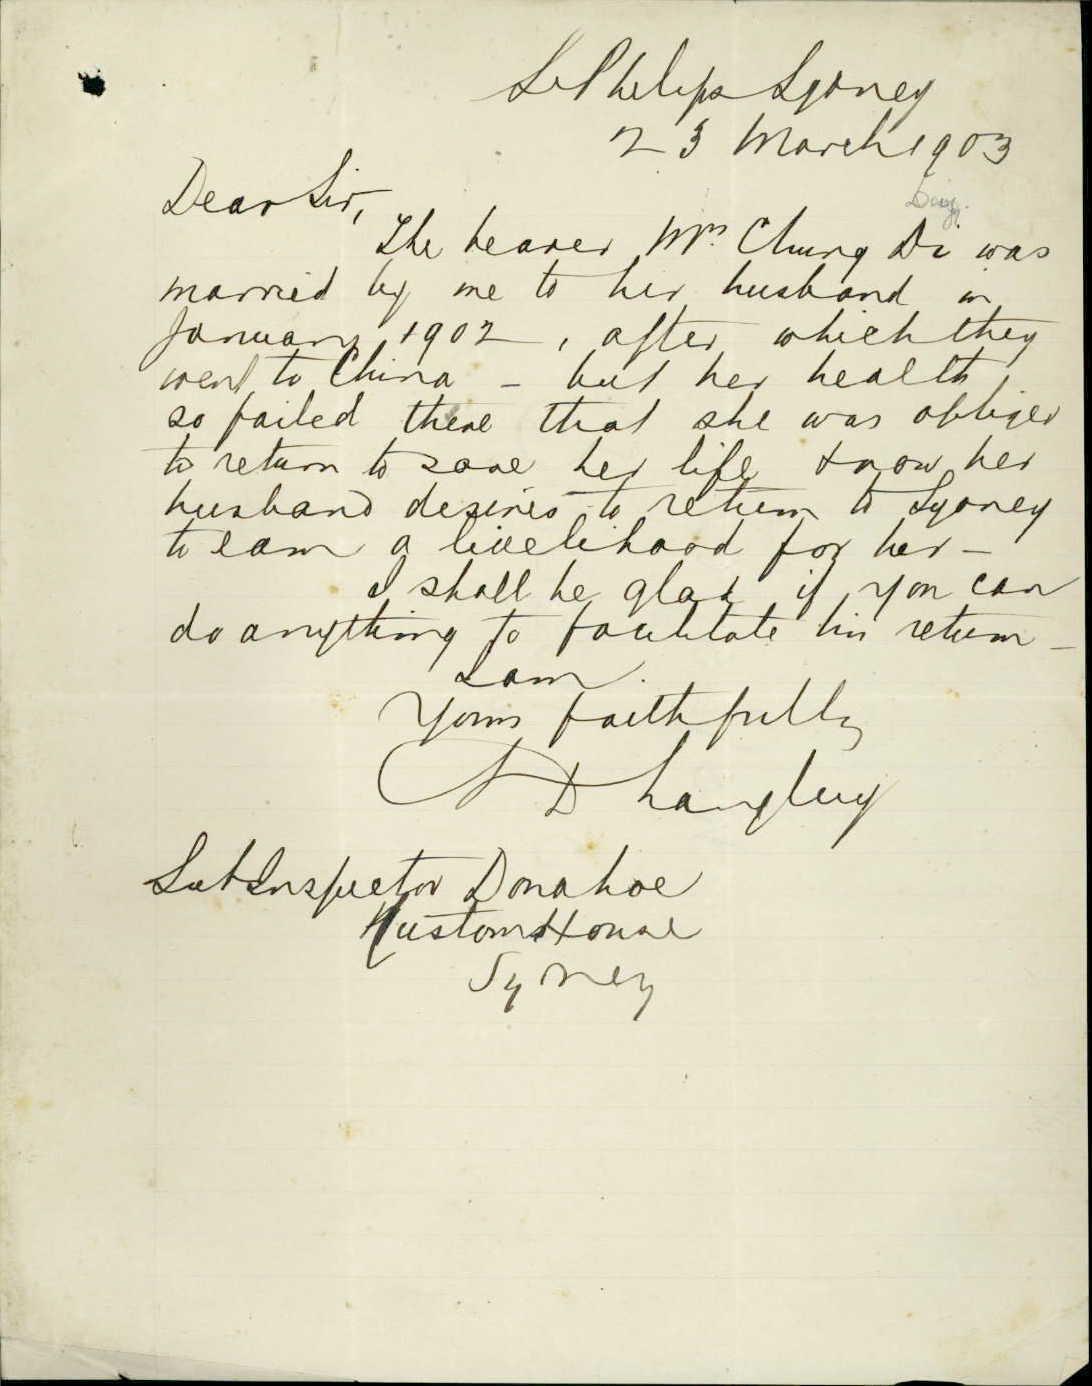 St Philips Sydney
23 March 1903
Dear Sir,
The bearer Mrs Chung Di was
married by me to her husband in
January 1902, after which they
went to China – but her health
so failed there that she was obliged
to return to save her life & now her
husband desires to return to Sydney
to earn a livelihood for her –
I shall be glad if you can
do anything to facilitate his return –
I am
Yours faithfully
D Langley
Sub Inspector Donahoe
Customs House
Sydney